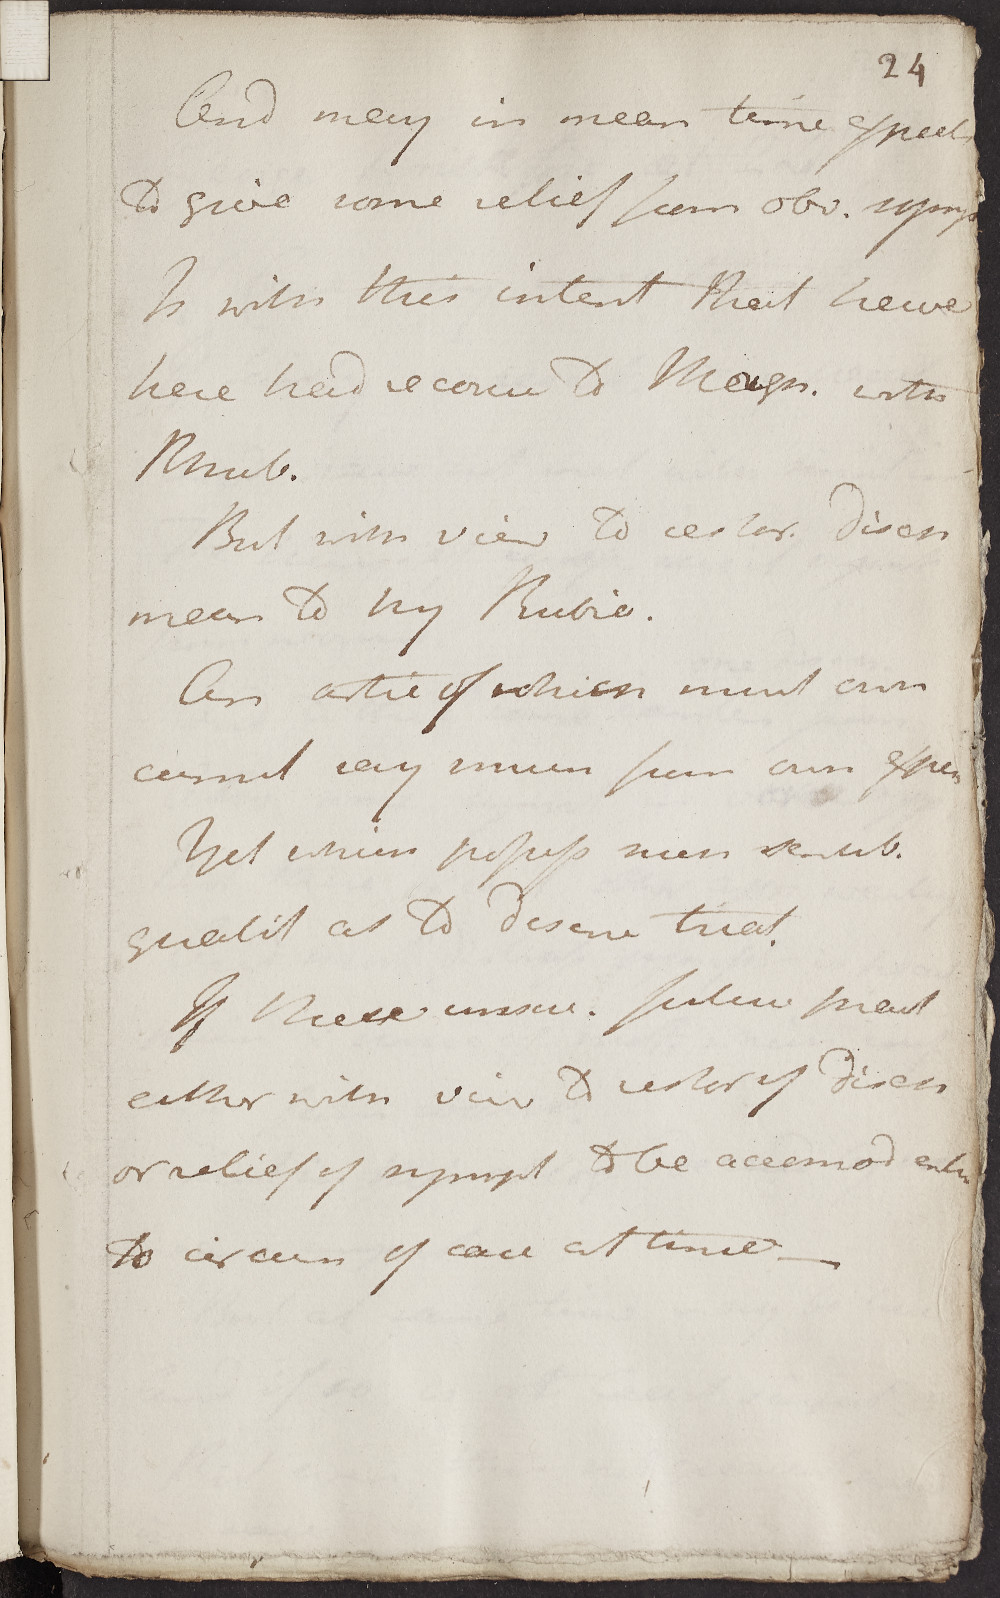 24
And may in mean time expect
to give some relief from obv. symp
Is with this intent that have
here had recour to Magn. with
Rhub.
But with view to restor. disch
mean to try Rubia.
An artic of which must own
cannot say much from own exper
Yet which possess such salub.
qualit as to deserve trial.
If these unsuc. future pract
either with view to restor of disch
or relief of sympt to be accomod entir
to circum of case at time —